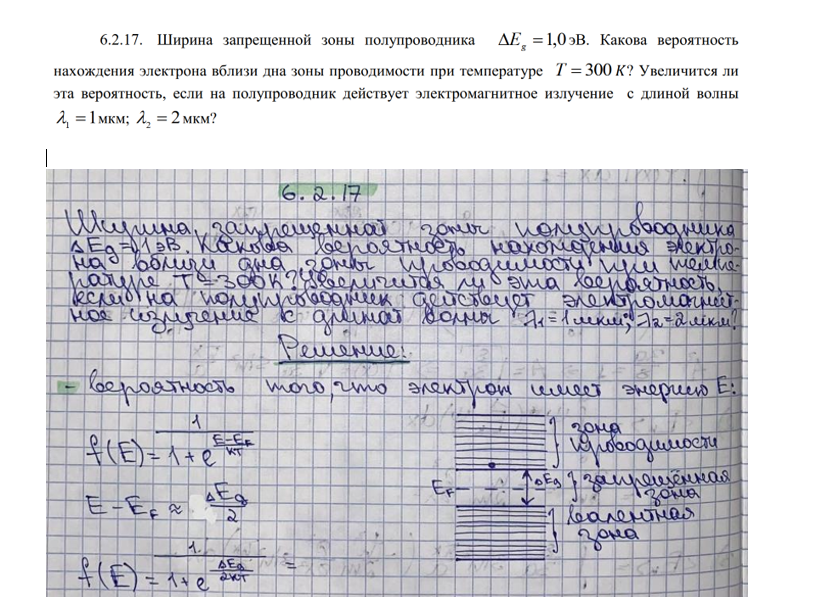 6.2.17. Ширина запрещенной зоны полупроводника ΔE_g = 1,0 эВ. Какова вероятность
нахождения электрона вблизи дна зоны проводимости при температуре T = 300 К? Увеличится ли
эта вероятность, если на полупроводник действует электромагнитное излучение с длиной волны
λ₁ = 1 мкм; λ₂ = 2 мкм?
6.2.17
Ширина запрещенной зоны полупроводника
ΔEg = 1 эВ. Какова вероятность нахождения электро-
на вблизи дна зоны проводимости при темпе-
ратуре T = 300К? Увеличится ли эта вероятность,
если на полупроводник действует электромагнит-
ное излучение с длиной волны λ₁=1мкм; λ₂=2мкм?
Решение:
- вероятность того, что электрон имеет энергию E:
f(E) = 1 / (1 + e^((E-E_F)/кТ))
E - E_F ≈ ΔEg / 2
f(E) = 1 / (1 + e^(ΔEg/2кТ)) =
зона
проводимости
E_F
ΔEg
запрещённая
зона
валентная
зона